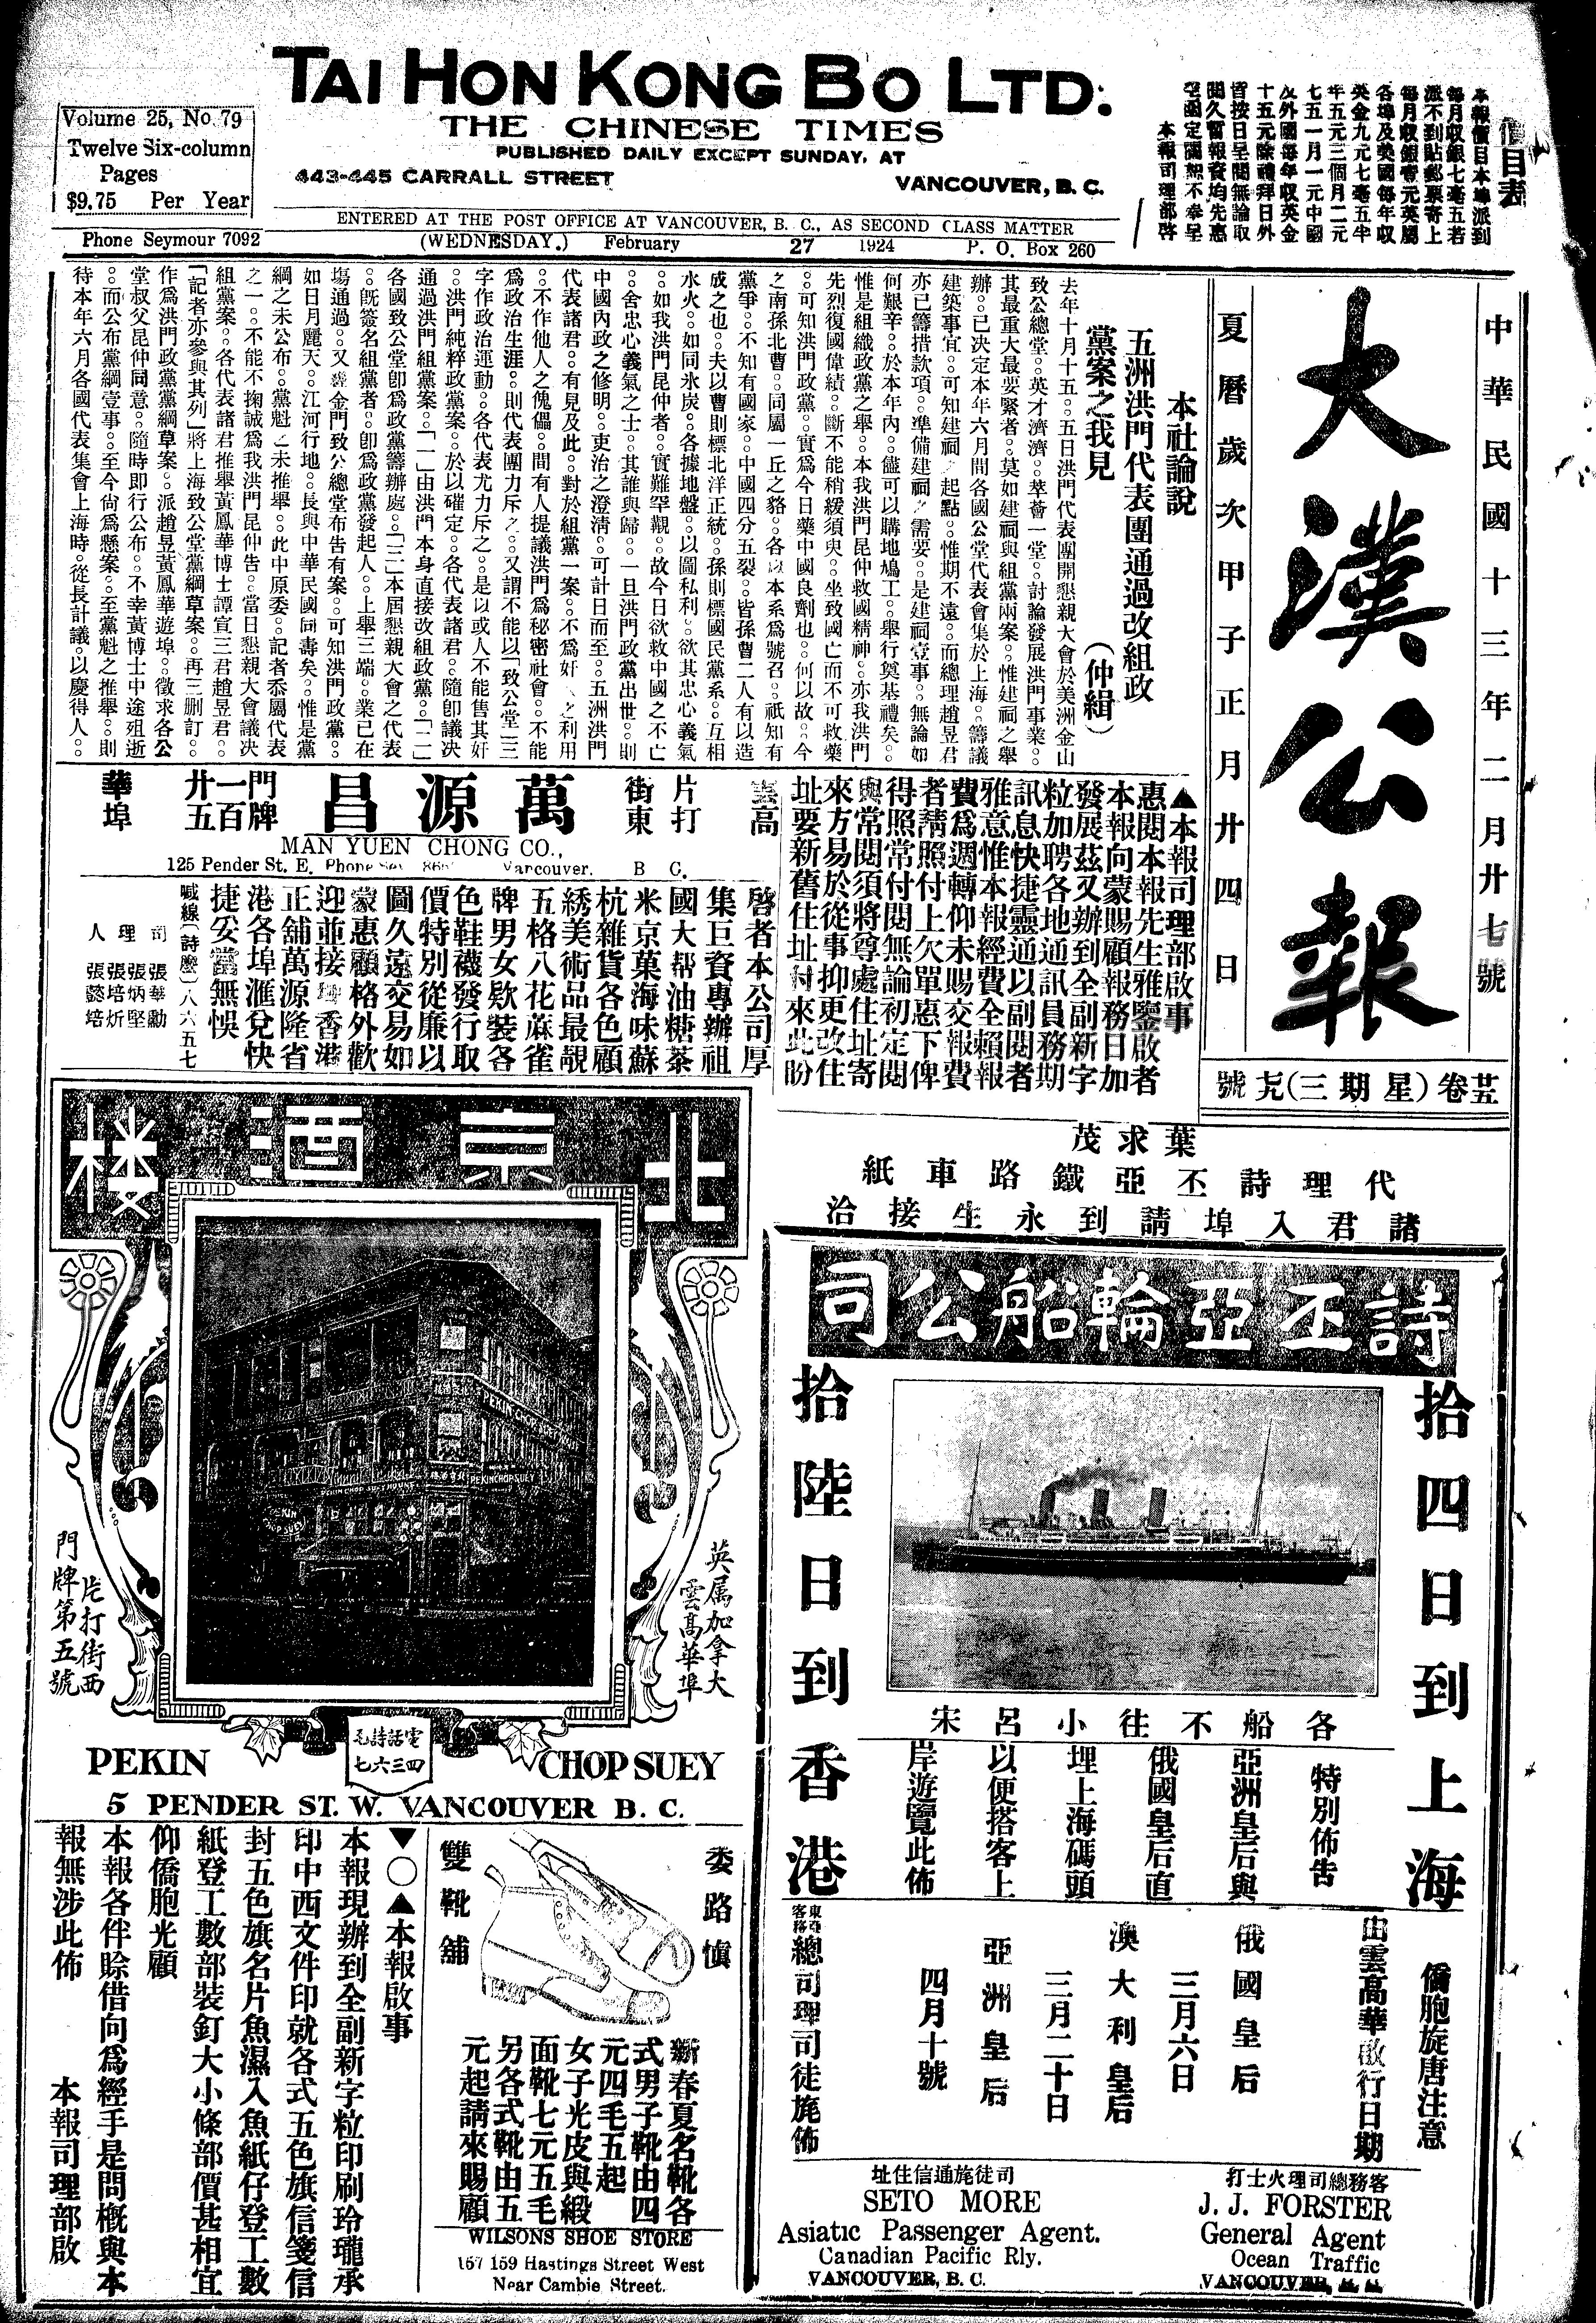 TAI HON KONG BO LTD.
THE CHINESE TIMES
PUBLISHED DAILY EXCEPT SUNDAY, AT
443-445 CARRALL STREET VANCOUVER, B. C.
Volume 25, No. 79
Twelve Six-column
Pages
$9.75 Per Year
ENTERED AT THE POST OFFICE AT VANCOUVER, B. C., AS SECOND CLASS MATTER
Phone Seymour 7092 (WEDNESDAY.) February 27 1924 P. O. Box 260
價目表
本報價目本埠派到
每月收銀七毫五若
派不到貼郵票寄上
每月收銀壹元英屬
各埠及美國每年收
英金九元七毫五半
年五元三個月二元
七五一月一元中國
及外國每年收英金
十五元除禮拜日外
皆按日呈閱無論取
閱久暫報資均先惠
本報司理部啓
中華民國十三年二月廿七號
大漢公報
夏曆歲次甲子正月廿四日
廿五卷(星期三)七九號
本社論說
五洲洪門代表團通過改組政
黨案之我見 (仲緝)
去年十月十五。五日洪門代表團開懇親大會於美洲金山
致公總堂。英才濟濟。萃薈一堂。討論發展洪門事業。
其最重大最要緊者。莫如建祠與組黨兩案。惟建祠之舉
辦。已決定本年六月間各國公堂代表會集於上海。籌議
建築事宜。可知建祠之起點。惟期不遠。而總理趙昱君
亦已籌措款項。準備建祠之需要。是建祠壹事。無論如
何艱辛。於本年內。儘可以購地鳩工。舉行奠基禮矣。
惟是組織政黨之舉。本我洪門昆仲救國精神。亦我洪門
先烈復國偉績。斷不能稍緩須臾。坐致國亡而不可救藥
。可知洪門政黨。實為今日藥中國良劑也。何以故。今
之南孫北曹。同屬一丘之貉。各以本系為號召。祇知有
黨爭。不知有國家。中國四分五裂。皆孫曹二人有以造
成之也。夫以曹則標北洋正統。孫則標國民黨系。互相
水火。如同氷炭。各據地盤。以圖私利。欲其忠心義氣
。如我洪門昆仲者。實難罕觀。故今日欲救中國之不亡
。舍忠心義氣之士。其誰與歸。一旦洪門政黨出世。則
中國內政之修明。吏治之澄清。可計日而至。五洲洪門
代表諸君。有見及此。對於組黨一案。不為奸人之利用
。不作他人之傀儡。間有人提議洪門為秘密社會。不能
為政治生涯。則代表團力斥之。又謂不能以「致公堂」三
字作政治運動。各代表尤力斥之。是以或人不能售其奸
。洪門純粹政黨案。於以確定。各代表諸君。隨即議決
通過洪門組黨案。「一」由洪門本身直接改組政黨。「二」
各國致公堂即為政黨籌辦處。「三」本屆懇親大會之代表
。既簽名組黨者。即為政黨發起人。上舉三端。業已在
塲通過。又經金門致公總堂布告有案。可知洪門政黨。
如日月麗天。江河行地。長與中華民國同壽矣。惟是黨
綱之未公布。黨魁之未推舉。此中原委。記者忝屬代表
之一。不能不掬誠為我洪門昆仲告。當日懇親大會議決
組黨案。各代表諸君推舉黃鳳華博士譚宣三君趙昱君。
「記者亦參與其列」將上海致公堂黨綱草案。再三刪訂。
作為洪門政黨黨綱草案。派趙昱黃鳳華遊埠。徵求各公
堂叔父昆仲同意。隨時即行公布。不幸黃博士中途殂逝
。而公布黨綱壹事。至今尙為懸案。至黨魁之推舉。則
待本年六月各國代表集會上海時。從長計議。以慶得人。
▲本報司理部啟事
惠閱本報先生雅鑒啟者
本報向蒙賜顧報務日加
發展茲又辦到全副新字
粒加聘各地通訊員務期
訊息快捷靈通以副閱者
雅意惟本報經費全賴報
費為週轉仰未賜交報費
者請照付上欠單惠下俾
得照常付閱無論初定閱
與常閱須將尊處住址寄
來方易於從事抑更改住
址要新舊住址付來此盼
雲高華埠 片打街東 門牌一百廿五
萬源昌
MAN YUEN CHONG CO.,
125 Pender St. E. Vancouver. B C.
啓者本公司厚
集巨資專辦祖
國大帮油糖茶
米京菓海味蘇
杭雜貨各色顧
綉美術品最靚
五格八花蔴雀
牌男女欵裝各
色鞋襪發行取
價特別從廉以
圖久遠交易如
蒙惠顧格外歡
迎並接香港
正舖萬源隆省
港各埠滙兌快
捷妥當無悞
喊線(詩摩)八六五七
司理人
張華勳
張炳堅
張培炘
張懿培
葉求茂
代理詩丕亞鐵路車紙
諸君入埠請到永生接洽
北京酒楼
英属加拿大
雲髙華埠
片打街西
門牌第五號
PEKIN CHOP SUEY
電話詩毛
四三六七
PEKIN CHOP SUEY
5 PENDER ST. W. VANCOUVER B. C.
詩丕亞輪船公司
拾四日到上海
拾陸日到香港
各船不往小呂宋
特別佈告
亞洲皇后與
俄國皇后直
埋上海碼頭
以便搭客上
岸遊覽此佈
僑胞旋唐注意
由雲高華啟行日期
俄國皇后
三月六日
澳大利皇后
三月二十日
亞洲皇后
四月十號
東亞客務總司理司徒旄佈
客務總司理火士打
J. J. FORSTER
General Agent
Ocean Traffic
VANCOUVER,
司徒旄通信住址
SETO MORE
Asiatic Passenger Agent.
Canadian Pacific Rly.
VANCOUVER, B. C.
▼○▲本報啟事
本報現辦到全副新字粒印刷玲瓏承
印中西文件印就各式五色旗信箋信
封五色旗名片魚濕入魚紙仔登工數
紙登工數部裝釘大小條部價甚相宜
仰僑胞光顧
本報各伴賒借向為經手是問概與本
報無涉此佈 本報司理部啟
委路慎
雙靴舖
新春夏名靴各
式男子靴由四
元四毛五起
女子光皮與緞
面靴七元五毛
另各式靴由五
元起請來賜顧
WILSONS SHOE STORE
157 159 Hastings Street West
Near Cambie Street.